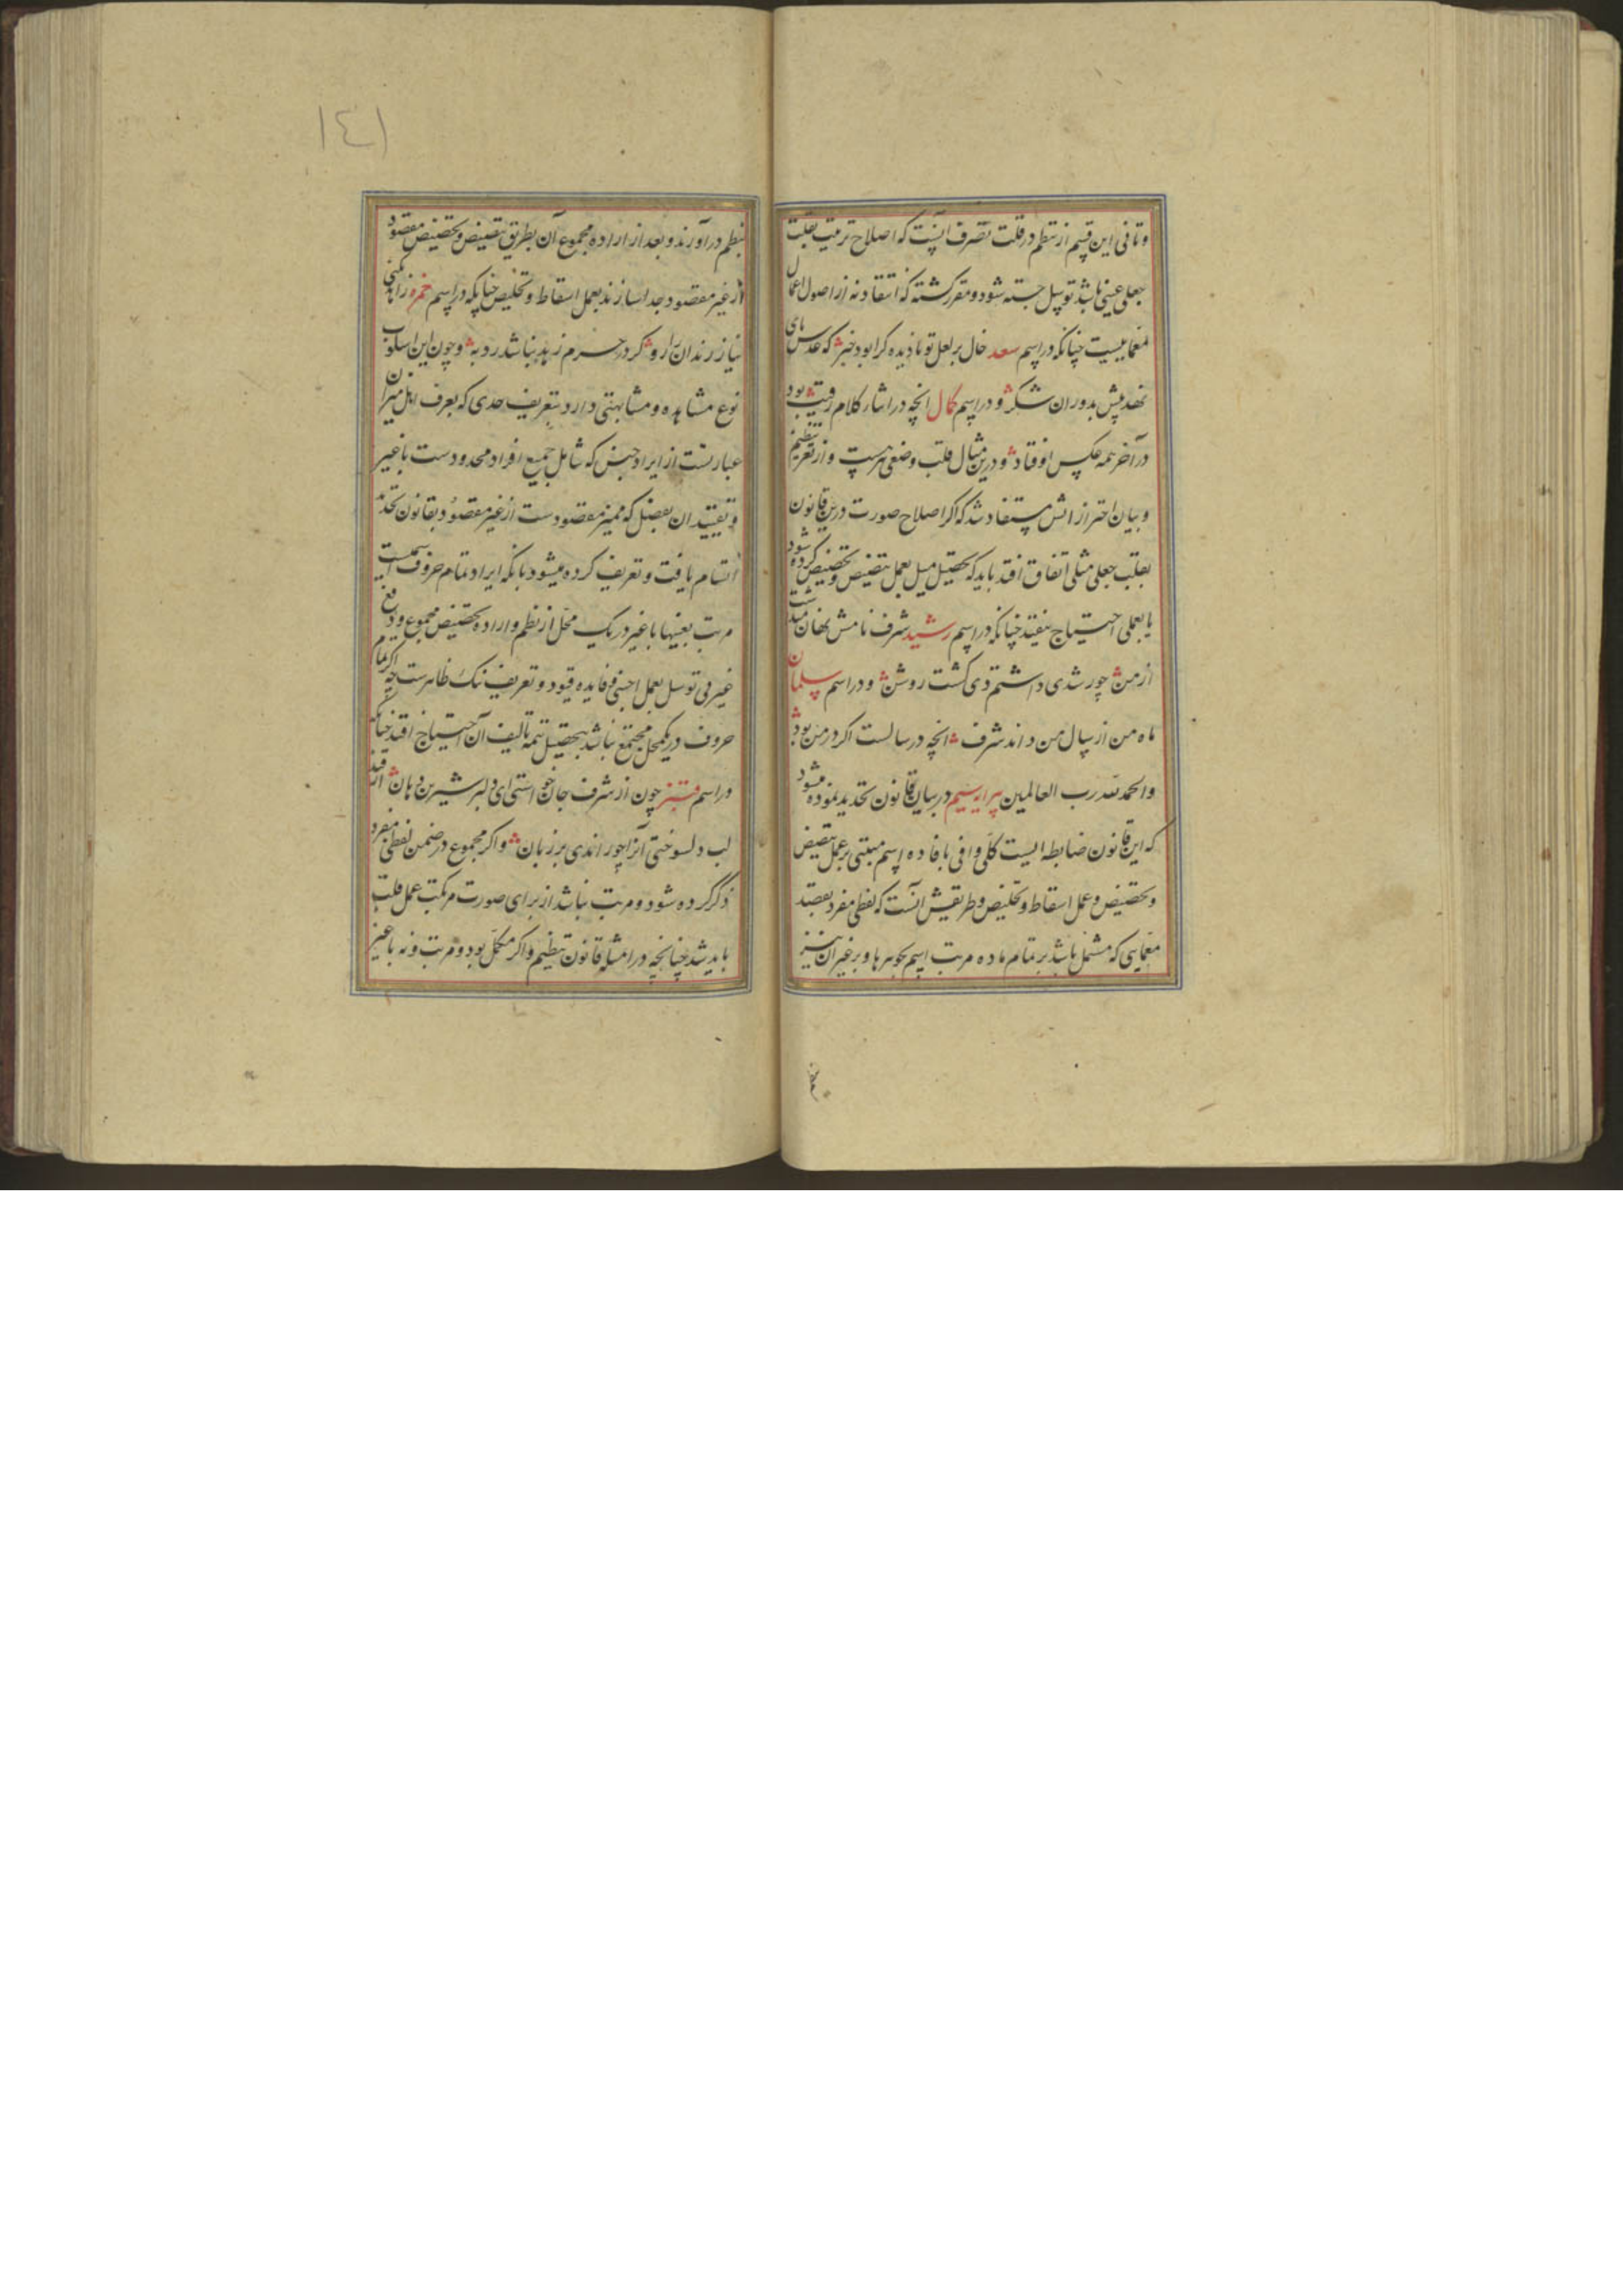 وثانی این قسم از تنظم در قلت تصرف آنست که اصلاح ترتیب بقلب
جعلی عینی باشد توسل جسته شود و مقرر گشته که انتقاد نه از اصول اعمال
معماییست چنانکه در اسم سعد خال بر لعل تو نادیده کرا بود خبر که عدس های
نهد پیش بدوران شکر و در اسم کمال انچه در اسار کلام رفیت بود
در آخر همه عکس اوفتاد و درین مثال قلب وضعی هست و از تعریف تنظیم
و بیان احترازاتش مستفاد شد که اگر اصلاح صورت درین قانون
بقلب جعلی مثلی اتفاق افتد باید که بتحصیل میل بعمل تنصیص و تخصیص کرده شود
یا بعملی احتیاج نیفتد چنانکه در اسم رشید شرف نامش نهان میداشت
از من چو رشدی داشتم دی گشت روشن و در اسم سلمان
ماه من از سال من داند شرف انچه در سالست اگر در من بود
والحمد لله رب العالمین پیرایه سیم در بیان قانون تحدید نموده میشود
که این قانون ضابطه ایست کلی وافی بافاده اسم مبتنی بر عمل تنصیص
و تخصیص و عمل اسقاط و تخلیص و طریقش آنست که لفظی مفرد بقصد
معمایی که مشتمل باشد بر تمام ماده مرتب اسم بجوهرها و بر غیر آن نیز
۱۴۱
بنظم در آورند و بعد از اراده مجموع آن بطریق تنصیص و تخصیص مقصود
از غیر مقصود جدا سازند بعمل اسقاط و تخلیص چنانکه در اسم حمزه زاهد مکنی
نیاز رندان را رو کرد حرم زهد نباشد ره به و چون این اسلوب
نوع مشابهه و مشابهتی دارد بتعریف حدی که بعرف اهل میزان
عبارتست از ایراد جنس که شامل جمیع افراد محدودست با غیر
و تقیید آن بفصل که ممیز مقصودست از غیر مقصود بقانون تحدید
اتسام یافت و تعریف کرده میشود بانکه ایراد تمام حروف اسمیست
مرتب بعینها با غیر در یک محل از نظم و اراده تخصیص مجموع و دفع
غیر بی توسل بعمل اجنبی و فایده قیود و تعریف نیک ظاهرست چه اگر تمام
حروف در یکمحل مجتمع نباشد بتحصیل تتمه تالیف آن احتیاج افتد چنانکه
در اسم چون از شرف جان خواستی ای دلبر شیرین دهان از قند
لب دلسوختی آنرا چو راندی بر زبان و اگر مجموع در ضمن لفظی مفرد
ذکر کرده شود و مرتب نباشد از برای صورت مرکب عمل قلب
باید شد چنانچه در امثله قانون تنظیم و اگر مکمل بود و مرتب و نه با غیر